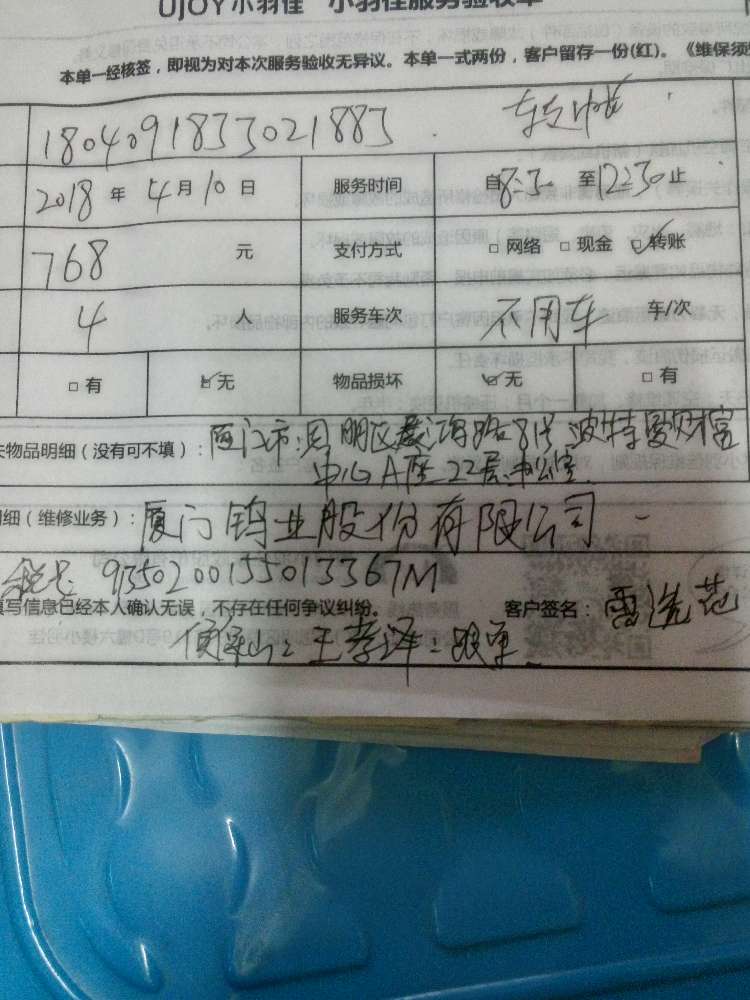 UJOY小羽佳 小羽佳服务验收单
本单一经核签，即视为对本次服务验收无异议。本单一式两份，客户留存一份(红)。《维保须
1804091833021883. 转帐
2018 年 4 月 10 日 服务时间 自8:30 至12:30止
768 元 支付方式 □ 网络 □ 现金 ☑转账
4 人 服务车次 不用车 车/次
□ 有 ☑无 物品损坏 ☑无 □ 有
失物品明细（没有可不填）：厦门市思明区展鸿路81号波特曼财富
中心A座22层办公室
明细（维修业务）：厦门钨业股份有限公司
税号 91350200155013367M
填写信息已经本人确认无误，不存在任何争议纠纷。 客户签名： 雷
王孝泽